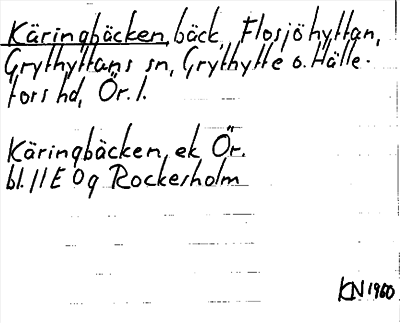 Käringbäcken, bäck, Flosjöhyttan,
Grythyttans sn, Grythytte o. Hälle-
fors hd, Ör. l.
Käringbäcken, ek Ör.
bl. 11E 0g Rockesholm
KN 1960